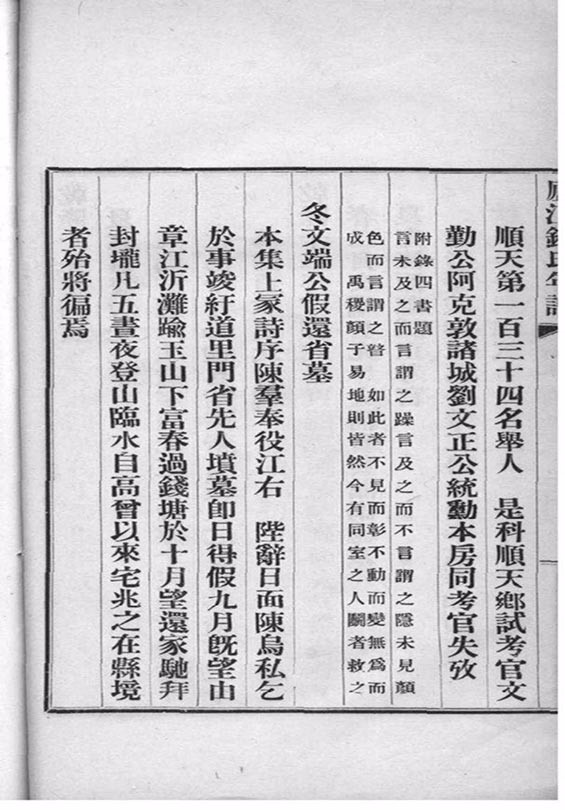 廬江錢氏年譜
順天第一百三十四名舉人　是科順天鄉試考官文
勤公阿克敦諸城劉文正公統勳本房同考官失攷
附錄四書題
言未及之而言謂之躁言及之而不言謂之隱未見顏
色而言謂之瞽　如此者不見而彰不動而變無爲而
成　禹稷顏子易地則皆然今有同室之人鬭者救之
冬文端公假還省墓
本集上冢詩序陳羣奉役江右　陛辭日面陳烏私乞
於事竣紆道里門省先人墳墓卽日得假九月旣望由
章江泝灘踰玉山下富春過錢塘於十月望還家馳拜
封壠凡五晝夜登山臨水自高曾以來宅兆之在縣境
者殆將徧焉